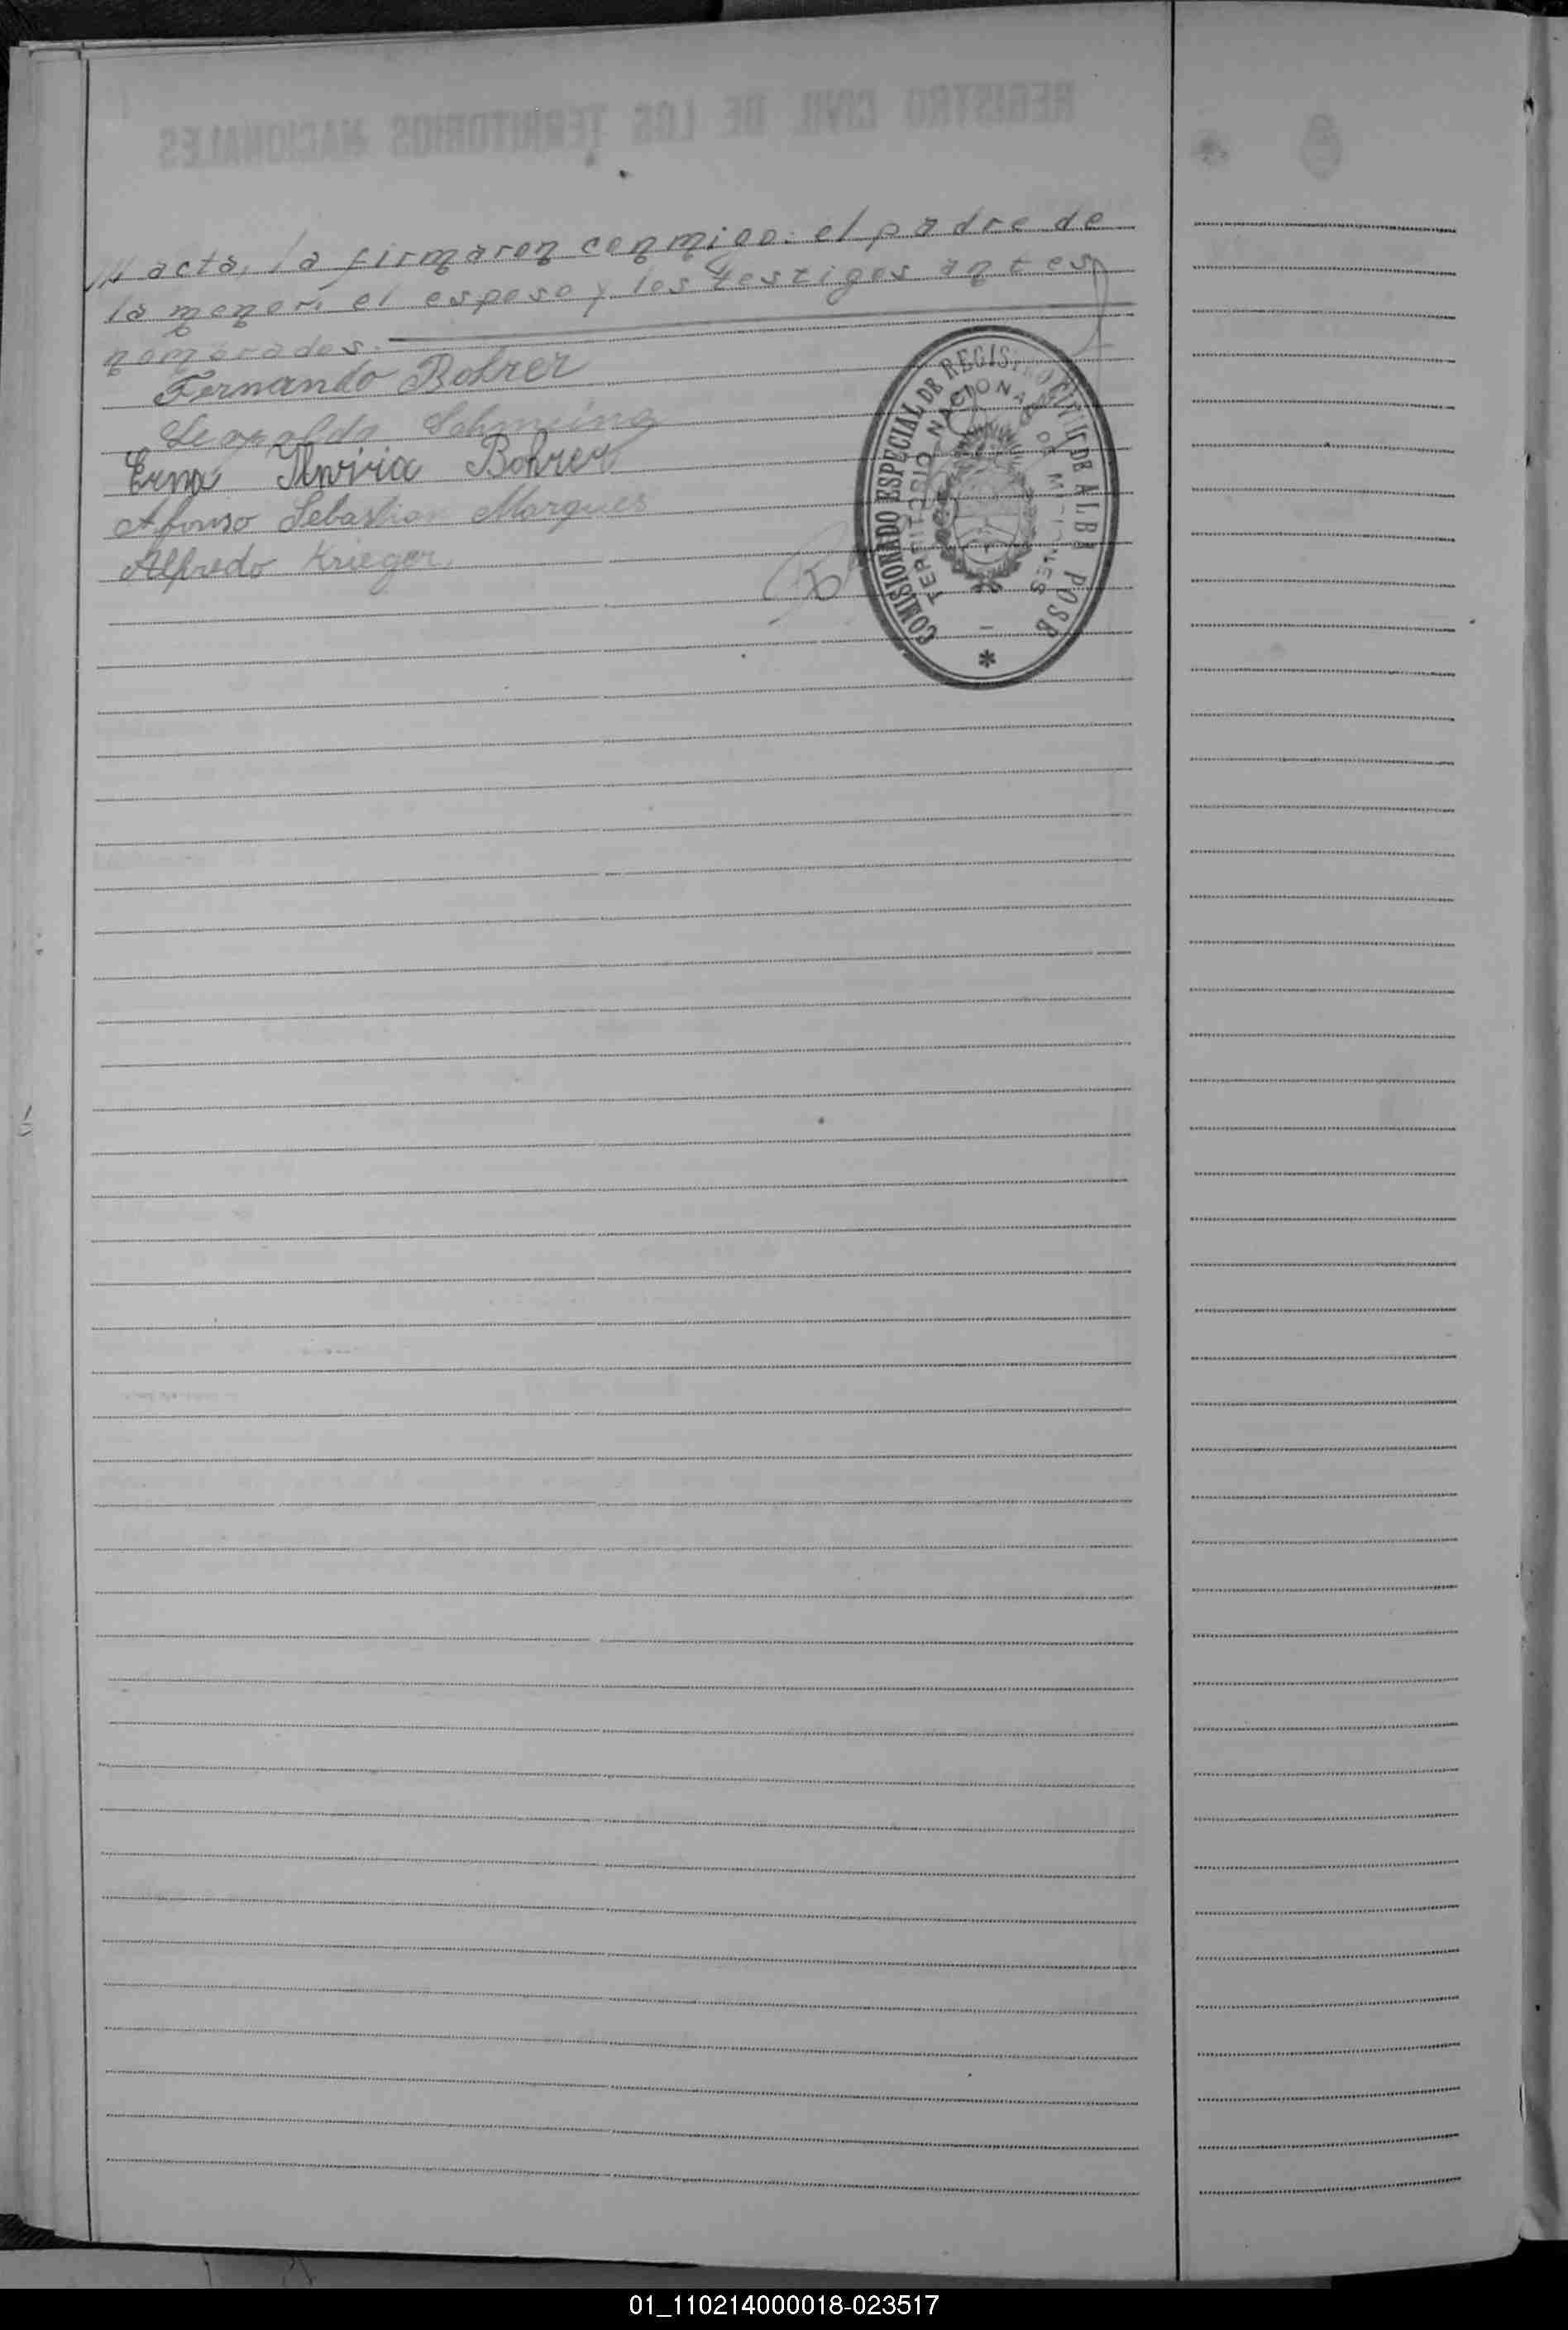 acta, la firmaron conmigo: el padre de
la menor, el esposo y los testigos antes
nombrados.
Fernando Bohrer
Leopoldo Schmeing
Erna Bohrer
Afonso Sebastian Marques
Alfredo Krieger.
COMISIONADO ESPECIAL DE REGISTRO CIVIL DE ALBA POSE
TERRITORIO NACIONAL DE MISIONES
REGISTRO CIVIL DE LOS TERRITORIOS NACIONALES
01_110214000018-023517